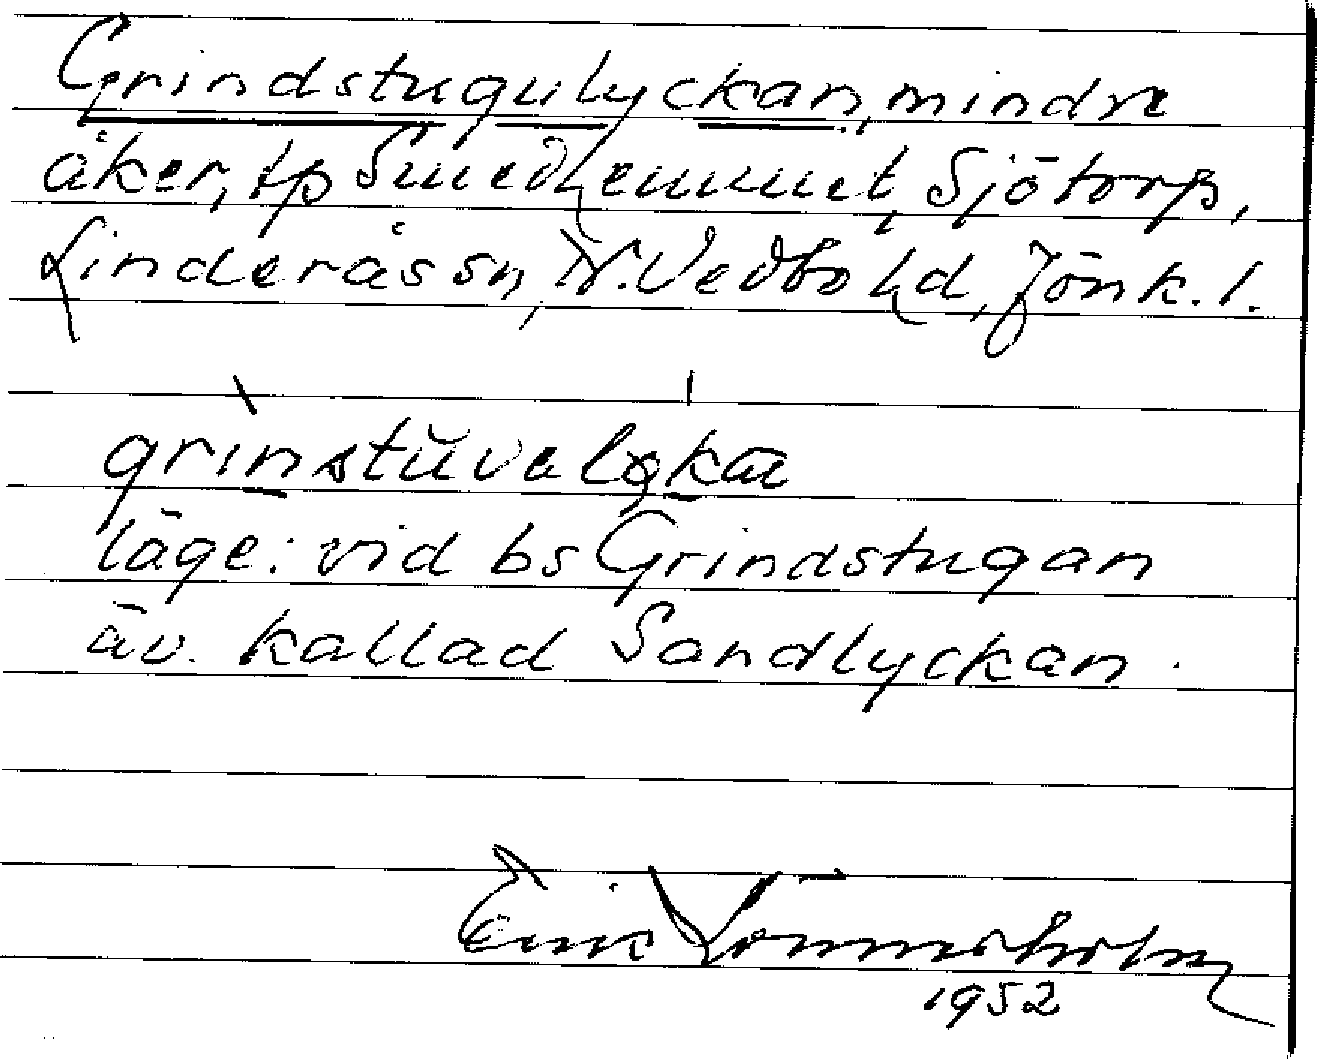 Grindstugulyckan, mindre
åker, tp Smedhemmet, Sjötorp,
Linderås sn, N. Vedbo hd, Jönk. l.
grinstŭvalykα
läge: vid bs Grindstugan
äv. kallad Sandlyckan.
Erik
1952